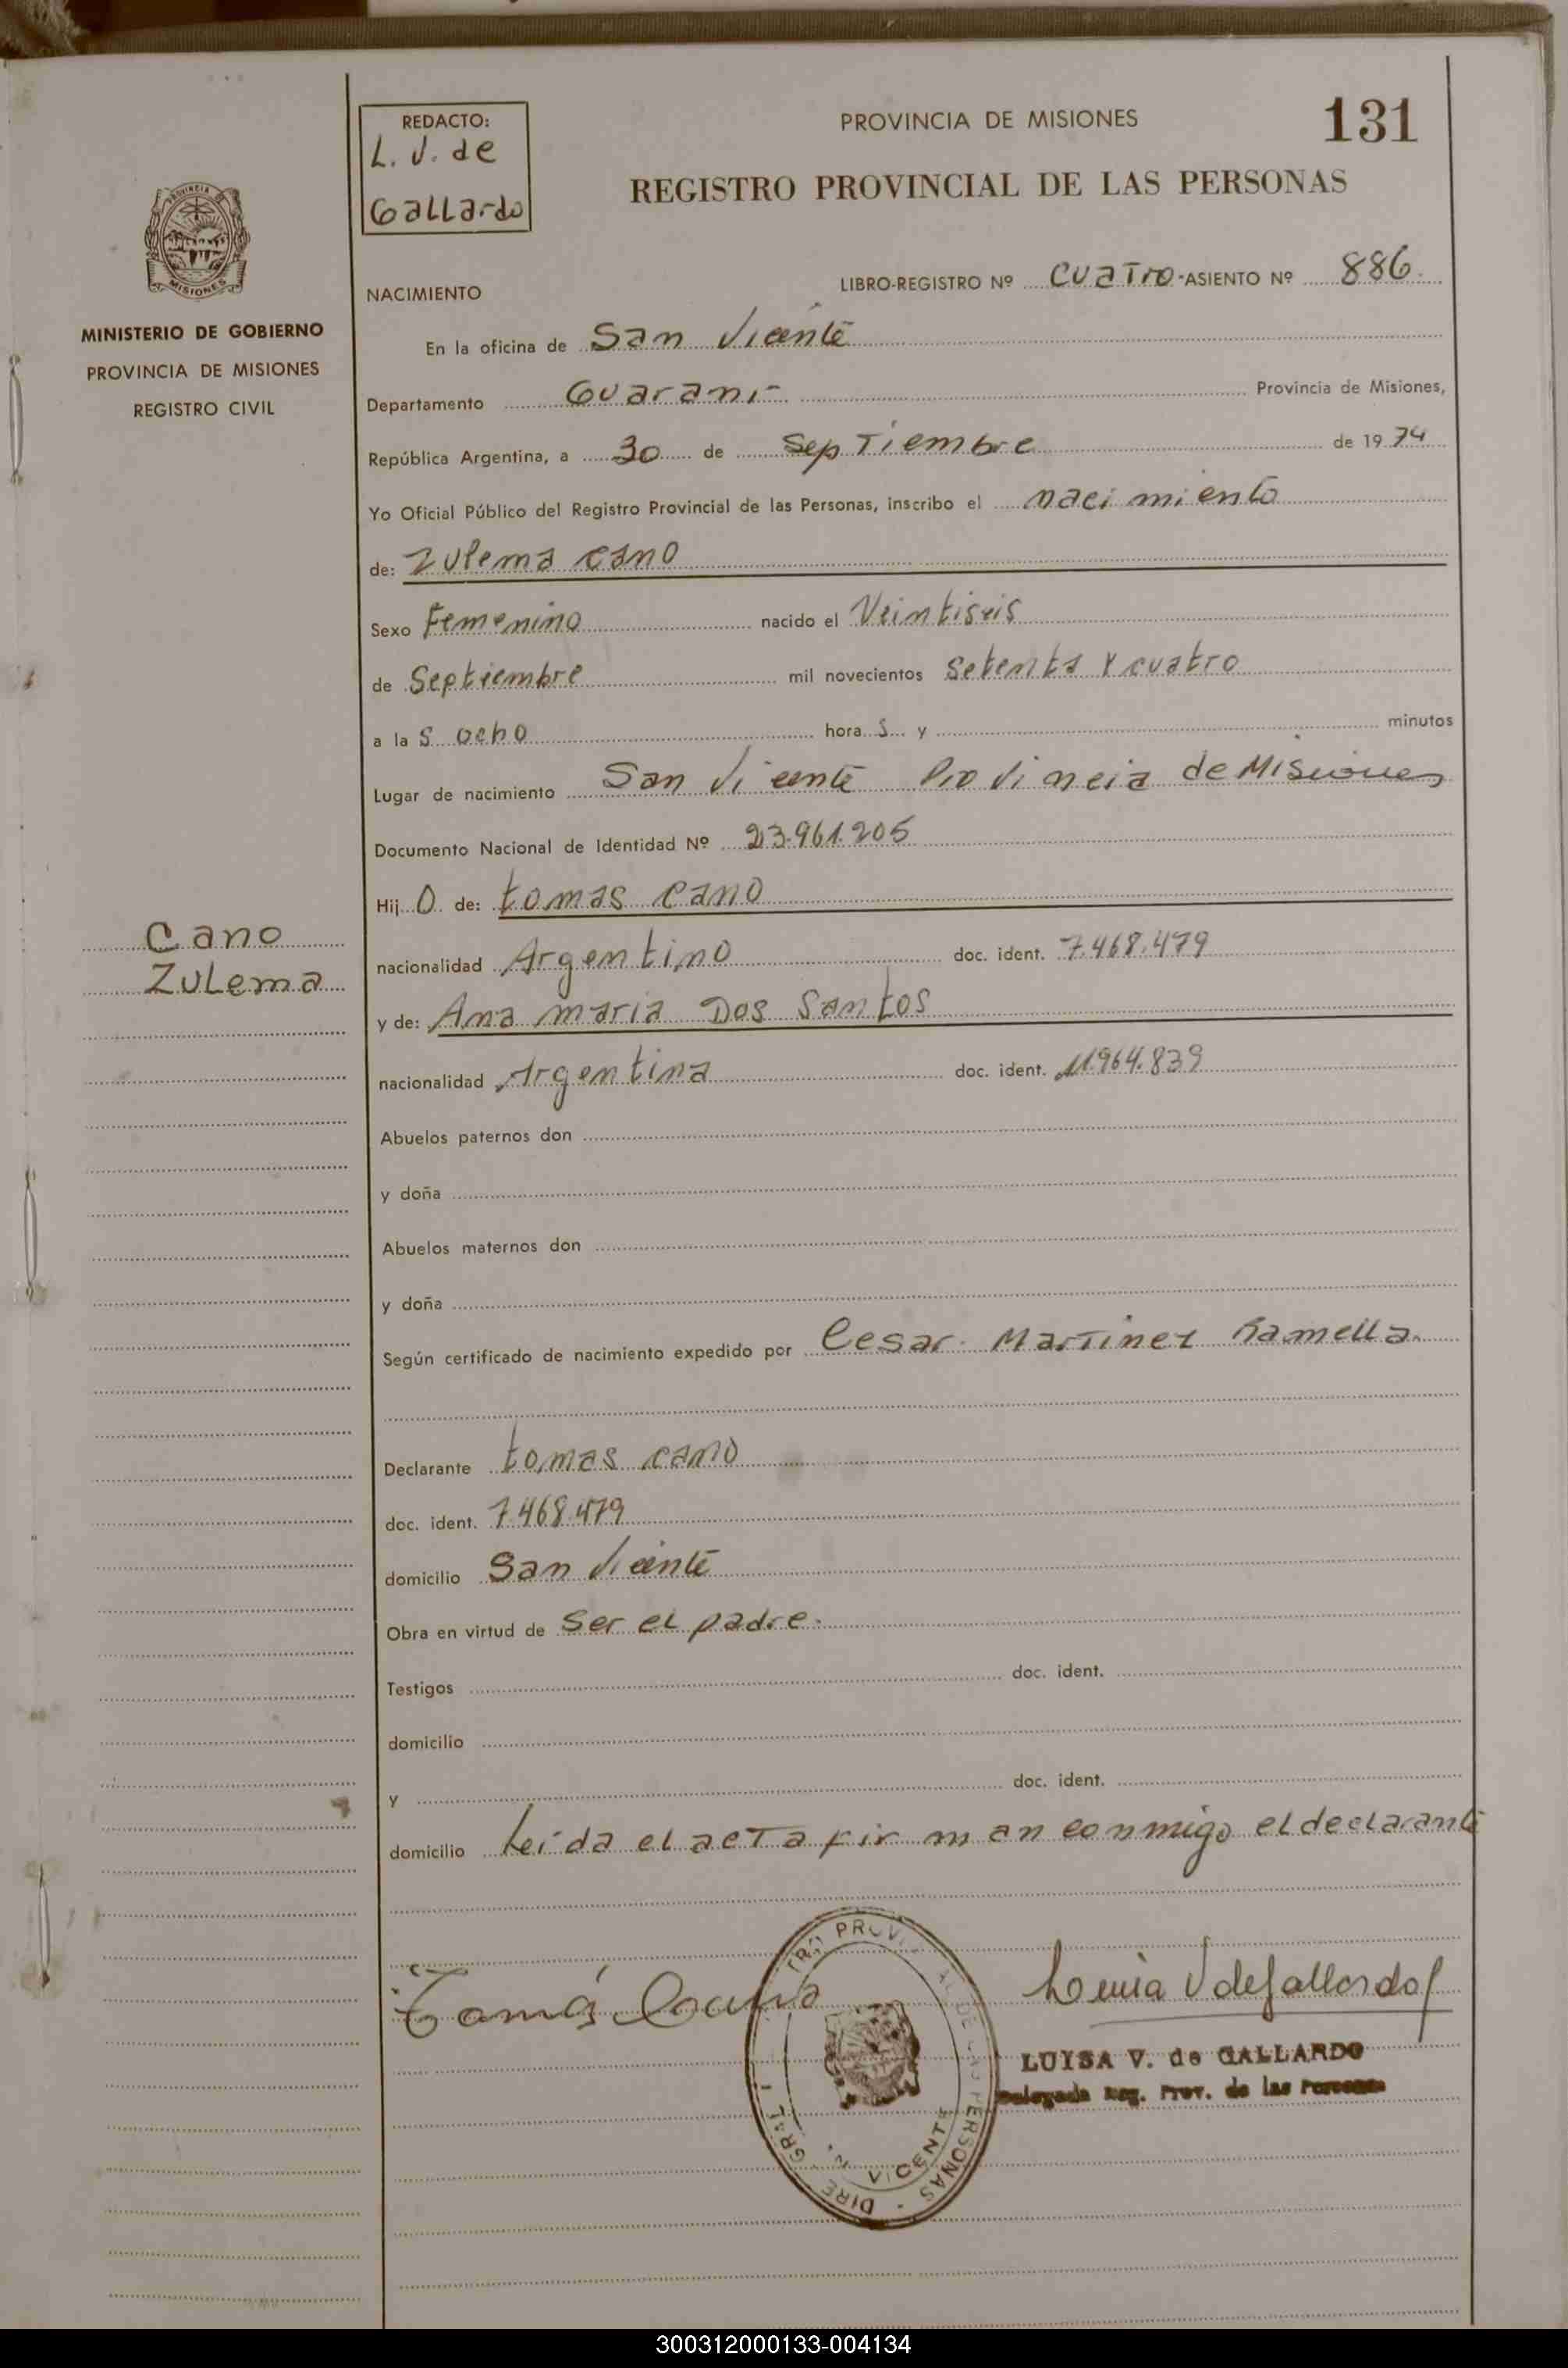 131
PROVINCIA DE MISIONES
REGISTRO PROVINCIAL DE LAS PERSONAS
REDACTO:
L. V. de
Gallardo
PROVINCIA
MISIONES
MINISTERIO DE GOBIERNO
PROVINCIA DE MISIONES
REGISTRO CIVIL
NACIMIENTO
LIBRO-REGISTRO Nº cuatro - ASIENTO Nº 886.
En la oficina de San Vicente
Departamento Guarani Provincia de Misiones,
República Argentina, a 30 de Septiembre de 1974
Yo Oficial Público del Registro Provincial de las Personas, inscribo el nacimiento
de: Zulema Cano
Sexo Femenino nacido el Veintiseis
de Septiembre mil novecientos Setenta y cuatro
a las ocho horas y minutos
Lugar de nacimiento San Vicente Provincia de Misiones
Documento Nacional de Identidad Nº 23.961.205
Hijo de: tomas cano
nacionalidad Argentino doc. ident. 7.468.479
y de: Ana maria Dos Santos
nacionalidad Argentina doc. ident. 11.964.839
Abuelos paternos don
y doña
Abuelos maternos don
y doña
Según certificado de nacimiento expedido por Cesar Martinez Ramella.
Declarante tomas cano
doc. ident. 7.468.479
domicilio San Vicente
Obra en virtud de Ser el padre.
Testigos doc. ident.
domicilio
y doc. ident.
domicilio Leida el acta firman conmigo el declarante
Cano
Zulema
Tomás Cano
Luisa V de Gallardo
LUISA V. de GALLARDO
Delegada Reg. Prov. de las Personas
DE LAS PERSONAS
VICENTE
300312000133-004134